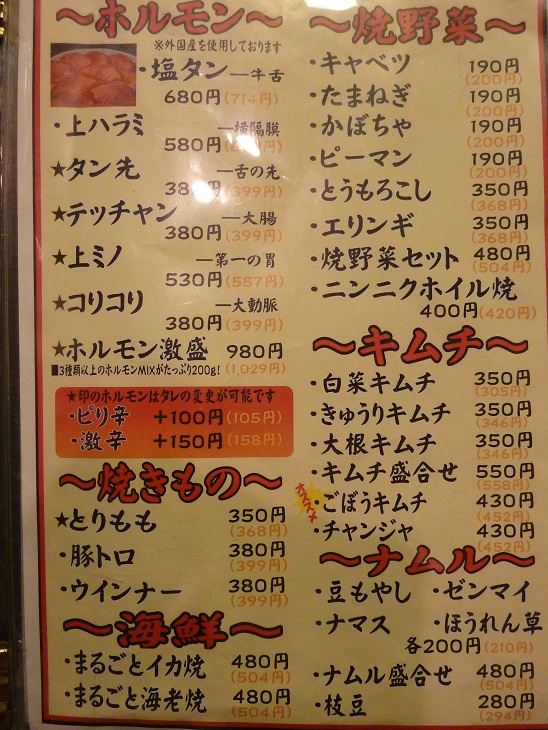 〜ホルモン〜
※外国産を使用しております
・塩タン―牛舌
680円(714円)
・上ハラミ―横隔膜
580円
★タン先―舌の先
380円(399円)
★テッチャン―大腸
380円(399円)
★上ミノ―第一の胃
530円(557円)
★コリコリ―大動脈
380円(399円)
★ホルモン激盛 980円
■3種類以上のホルモンMIXがたっぷり200g! (1,029円)
★印のホルモンはタレの変更が可能です
・ピリ辛 +100円(105円)
・激辛 +150円(158円)
〜焼きもの〜
★とりもも 350円
(368円)
・豚トロ 380円
(399円)
・ウインナー 380円
(399円)
〜海鮮〜
・まるごとイカ焼 480円
(504円)
・まるごと海老焼 480円
(504円)
〜焼野菜〜
・キャベツ 190円
(200円)
・たまねぎ 190円
(200円)
・かぼちゃ 190円
(200円)
・ピーマン 190円
(200円)
・とうもろこし 350円
(368円)
・エリンギ 350円
(368円)
・焼野菜セット 480円
(504円)
・ニンニクホイル焼
400円(420円)
〜キムチ〜
・白菜キムチ 350円
(305円)
・きゅうりキムチ 350円
(346円)
・大根キムチ 350円
(346円)
・キムチ盛合せ 550円
(558円)
オススメ
・ごぼうキムチ 430円
(452円)
・チャンジャ 430円
(452円)
〜ナムル〜
・豆もやし ・ゼンマイ
・ナマス ・ほうれん草
各200円(210円)
・ナムル盛合せ 480円
(504円)
・枝豆 280円
(294円)